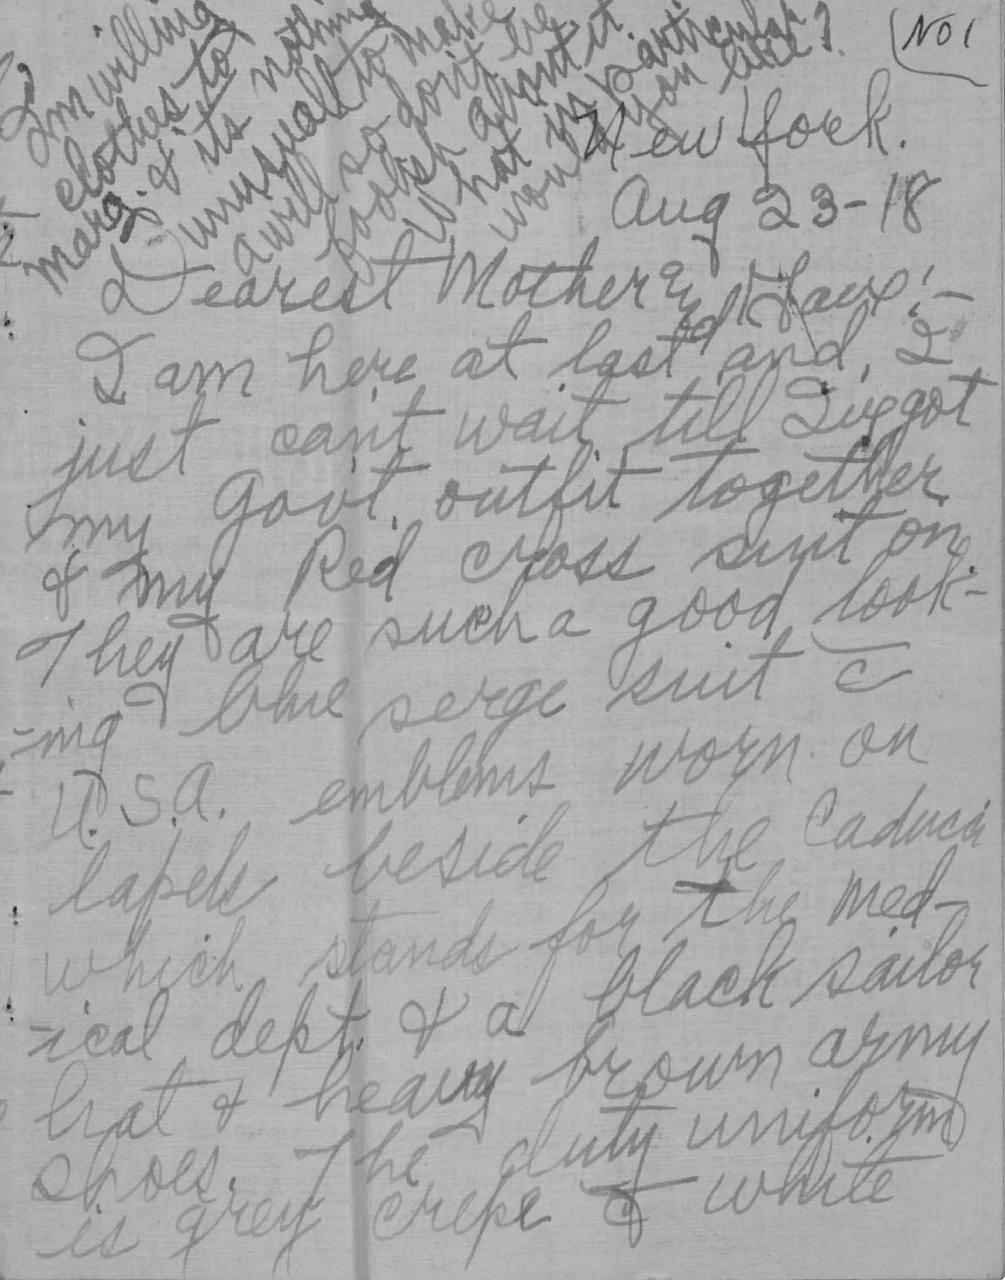 I'm willing
clothes to
marg. & its nothing
unusual to make
a will so don't be
foolish about it.
What in particular
would you like?
No 1
New York.
Aug 23-18
Dearest Mother and
I am here at last and, I
just can't wait till I've got
my Gov't. outfit together
& my Red Cross suit on.
They are such a good look-
-ing blue serge suit c̄
U.S.A. emblems worn on
lapels beside the Caducii
which stands for the med-
-ical dept. & a black sailor
hat & heavy brown army
shoes. The duty uniform
is grey crepe & white